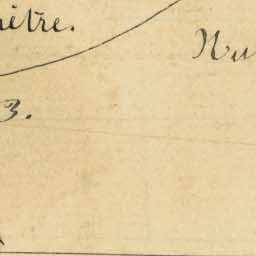 ètre.
Nu
3.